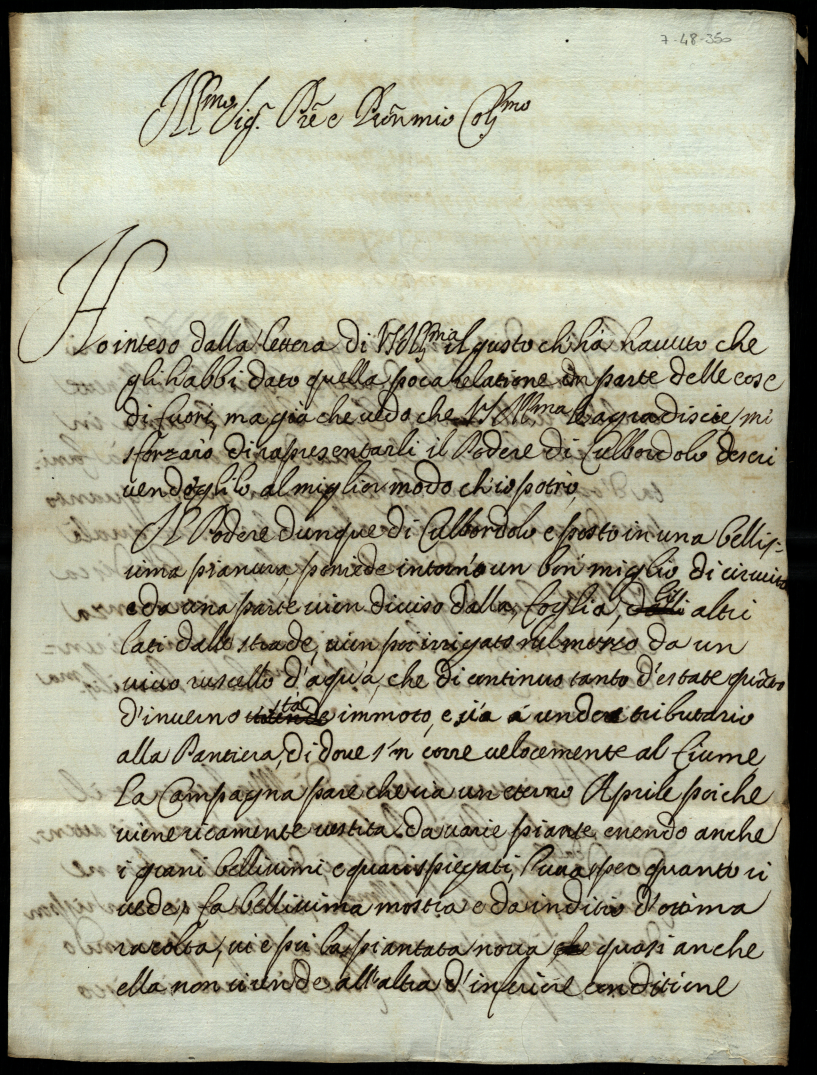 7-48-350
Ill.mo Sig.r Prē e Prōn mio Col.mo
Ho inteso dalla lettera di VS Ill.ma il gusto ch'hà havuto che
gli habbi dato quella poca relatione in parte delle cose
di fuori, ma già che vedo che VS Ill.ma le agradiscie, mi
sforzarò di rapresentarli il Podere di Culbordolo descri
vendoglilo al miglior modo ch'io potrò,
Il Podere dunque di Culbordolo e posto in una bellis-
sima pianura, possiede intorno un bon miglio di circuito
e da una parte vien diviso dalla foglia, gli altri
lati dalle strade, vien poi irrigato nel mezzo da un
vivo ruscello d'aqua, che di continuo tanto d'estate quāto
d'inverno stà immoto, e si a tributario
alla Pantiera, di dove s'en corre velocemente al fiume
La Campagna pare che sia un eterno Aprile poiche
viene ricamente vestita da varie piante essendo anche
i grani bellissimi e quasi spiegati, l'uva per quanto si
vede, fa bellissima mostra e da inditio d'ottima
racolta, vi è poi la piantata nova quasi anche
ella non si rende all'altra d'inferiore conditione